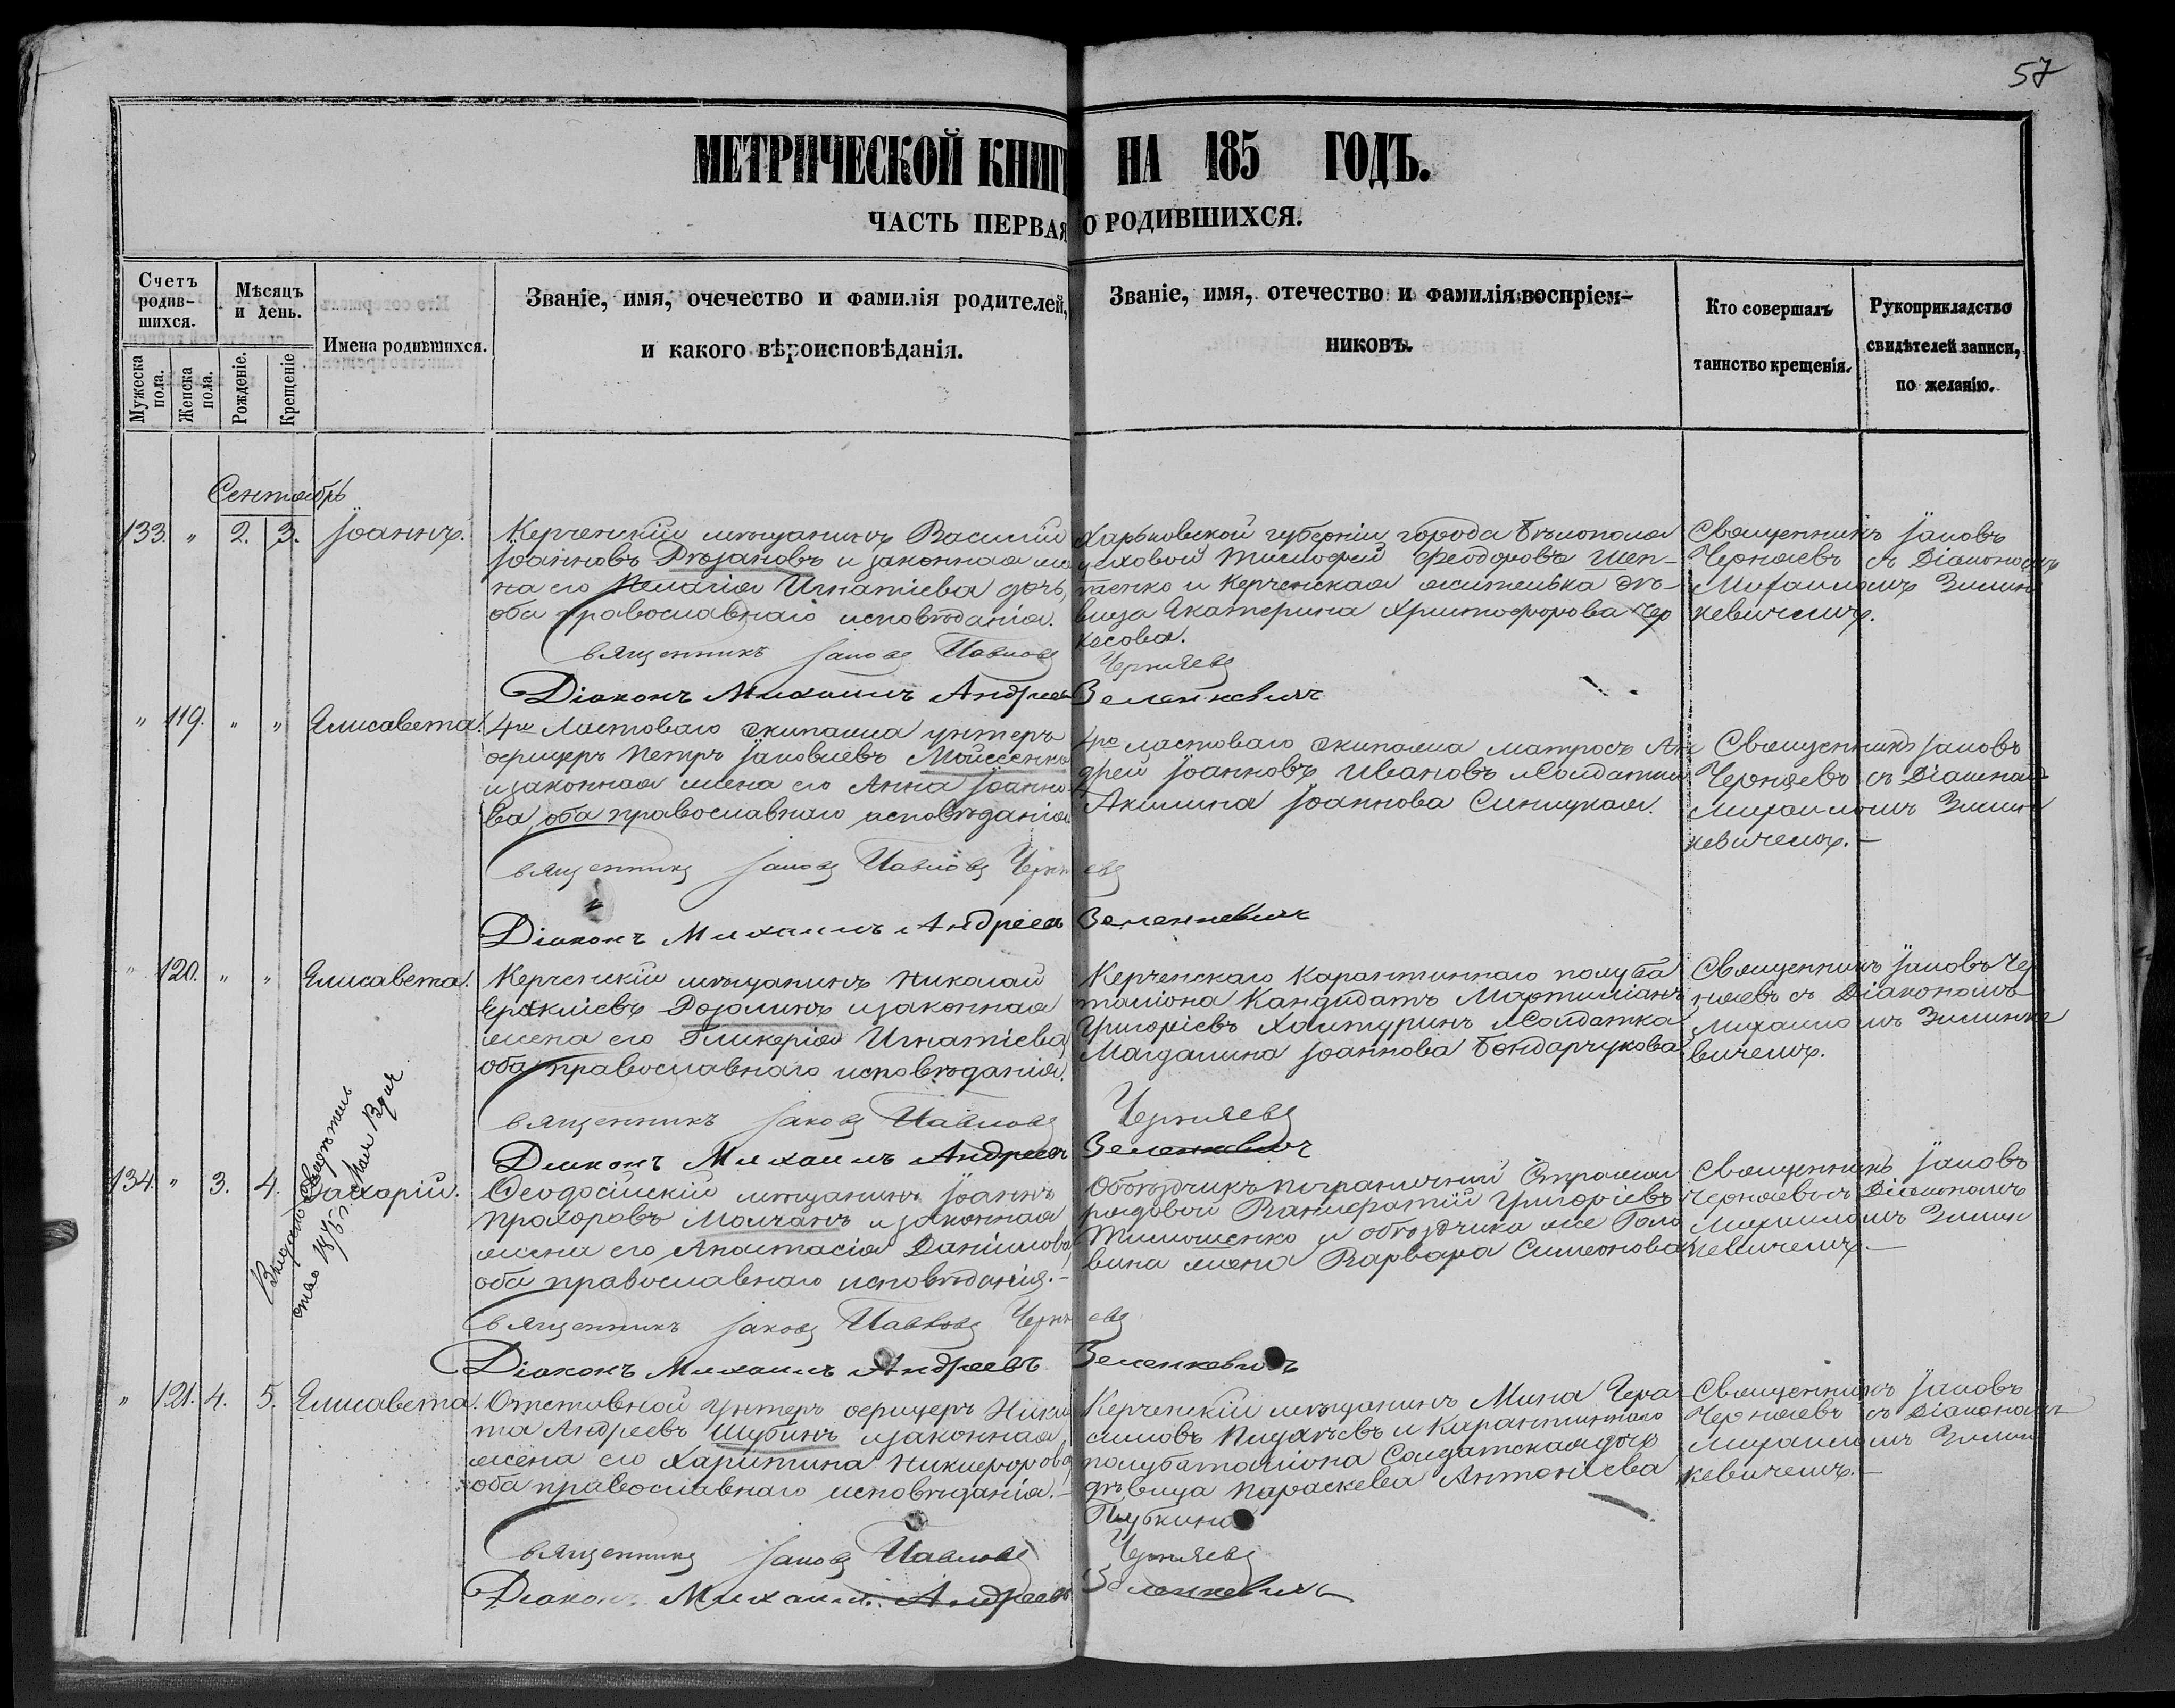 57
МЕТРИЧЕСКОЙ КНИГИ НА 185 ГОДЪ.
ЧАСТЬ ПЕРВАЯ О РОДИВШИХСЯ.
Счетъ родив-шихся.
Мужеска пола.
Женска пола.
Мѣсяцъ и день.
Рожденіе.
Крещеніе
Имена родившихся.
Званіе, имя, очечество и фамилія родителей,
и какого вѣроисповѣданія.
Званіе, имя, отечество и фамилія воспріем-
никовъ.
Кто совершалъ
таинство крещенія.
Рукоприкладство
свидѣтелей записи,
по желанію.
Сентябрь
133. " 2. 3. Іоаннъ.
Керченскій мѣщанинъ Василій
Іоанновъ и законная же
на его Пелагія Игнатіева дочь,
оба православнаго исповѣданія.
Харьковской губерніи города Бѣлополя
цеховой Тимофей Феодоровъ Шев-
ченко и Керченская жителька дѣ-
вица Екатерина Христофорова Чер
касова.
Священникъ Іаковъ
Черняевъ съ Діакономъ
Михаиломъ Зелен
кевичемъ.
Священникъ Іаковъ Павловъ Черняевъ
Діаконъ Михаилъ Андреевъ Зеленкевичъ
" 119. " " Елисавета.
4го Ластоваго экипажа унтеръ
офицеръ Петръ Іаковлевъ Мойсеенко
и законная жена его Анна Іоанно
ва, оба православнаго исповѣданія.
4го ластоваго экипажа матросъ Ан
дрей Іоанновъ Ивановъ и Солдатка
Акилина Іоаннова Синицкая.
Священникъ Іаковъ
Черняевъ съ Діакономъ
Михаиломъ Зелен
кевичемъ.—
Священникъ Іаковъ Павловъ Черняевъ
Діаконъ Михаилъ Андреевъ Зеленкевичъ
" 120. " " Елисавета.
Керченскій мѣщанинъ Николай
Ераклiевъ и законная
жена его Гликерія Игнатіева,
оба православнаго исповѣданія.
Керченскаго Карантиннаго полуба
таліона Кандидатъ Мартиміанъ
Григоріевъ Халтуринъ и Солдатка
Магдалина Іоаннова Бондарчукова.
Священникъ Іаковъ Чер
няевъ съ Діакономъ
Михаиломъ Зеленке
вичемъ.
Священникъ Іаковъ Павловъ Черняевъ
Діаконъ Михаилъ Андреевъ Зеленкевичъ
134. " 3. 4. Захарій.
Ѳеодосійскій мѣщанинъ Іоаннъ
Прохоровъ Молчанъ и законная
жена его Анастасія Даніилова,
оба православнаго исповѣданія.—
Объѣздчикъ пограничной Стражи
рядовой Григоріевъ
Тимошенко и объѣздчика же Голо
вина жена Варвара Симеонова.
Священникъ Іаковъ
Черняевъ съ Діакономъ
Михаиломъ Зелен
кевичемъ.—
Священникъ Іаковъ Павловъ Черняевъ
Діаконъ Михаилъ Андреевъ Зеленкевичъ
" 121. 4. 5. Елисавета.
Отставной Унтеръ офицеръ Ники
та Андреевъ Шубинъ и законная
жена его Харитина Никифорова,
оба православнаго исповѣданія.—
Керченскій мѣщанинъ Мина Гера
симовъ и Карантиннаго
полубаталіона Солдатская дочь
дѣвица Параскева Антоніева
Священникъ Іаковъ
Черняевъ съ Діакономъ
Михаиломъ Зелен
кевичемъ.—
Священникъ Іаковъ Павловъ Черняевъ
Діаконъ Михаилъ Андреевъ Зеленкевичъ